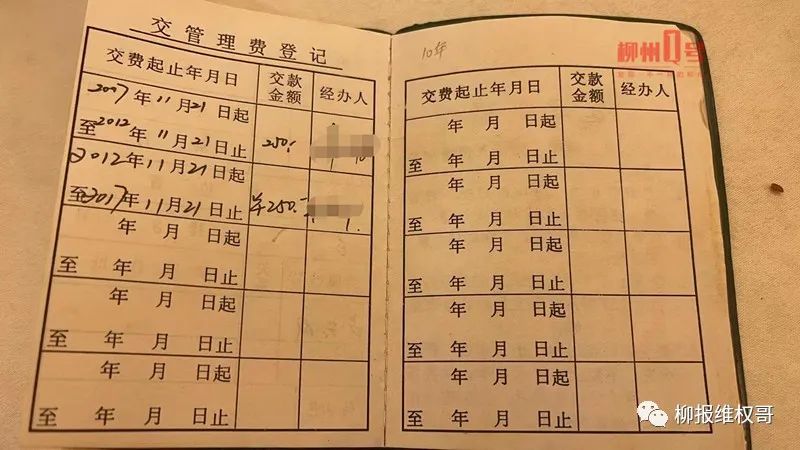 交管理费登记
交费起止年月日 交款金额 经办人
2007年11月21日起
至2012年11月21日止 250.-
2012年11月21日起
至2017年11月21日止 ¥250.-
年 月 日起
至 年 月 日止
年 月 日起
至 年 月 日止
年 月 日起
至 年 月 日止
10年
交费起止年月日 交款金额 经办人
年 月 日起
至 年 月 日止
年 月 日起
至 年 月 日止
年 月 日起
至 年 月 日止
年 月 日起
至 年 月 日止
年 月 日起
至 年 月 日止
柳州Q号
柳报维权哥